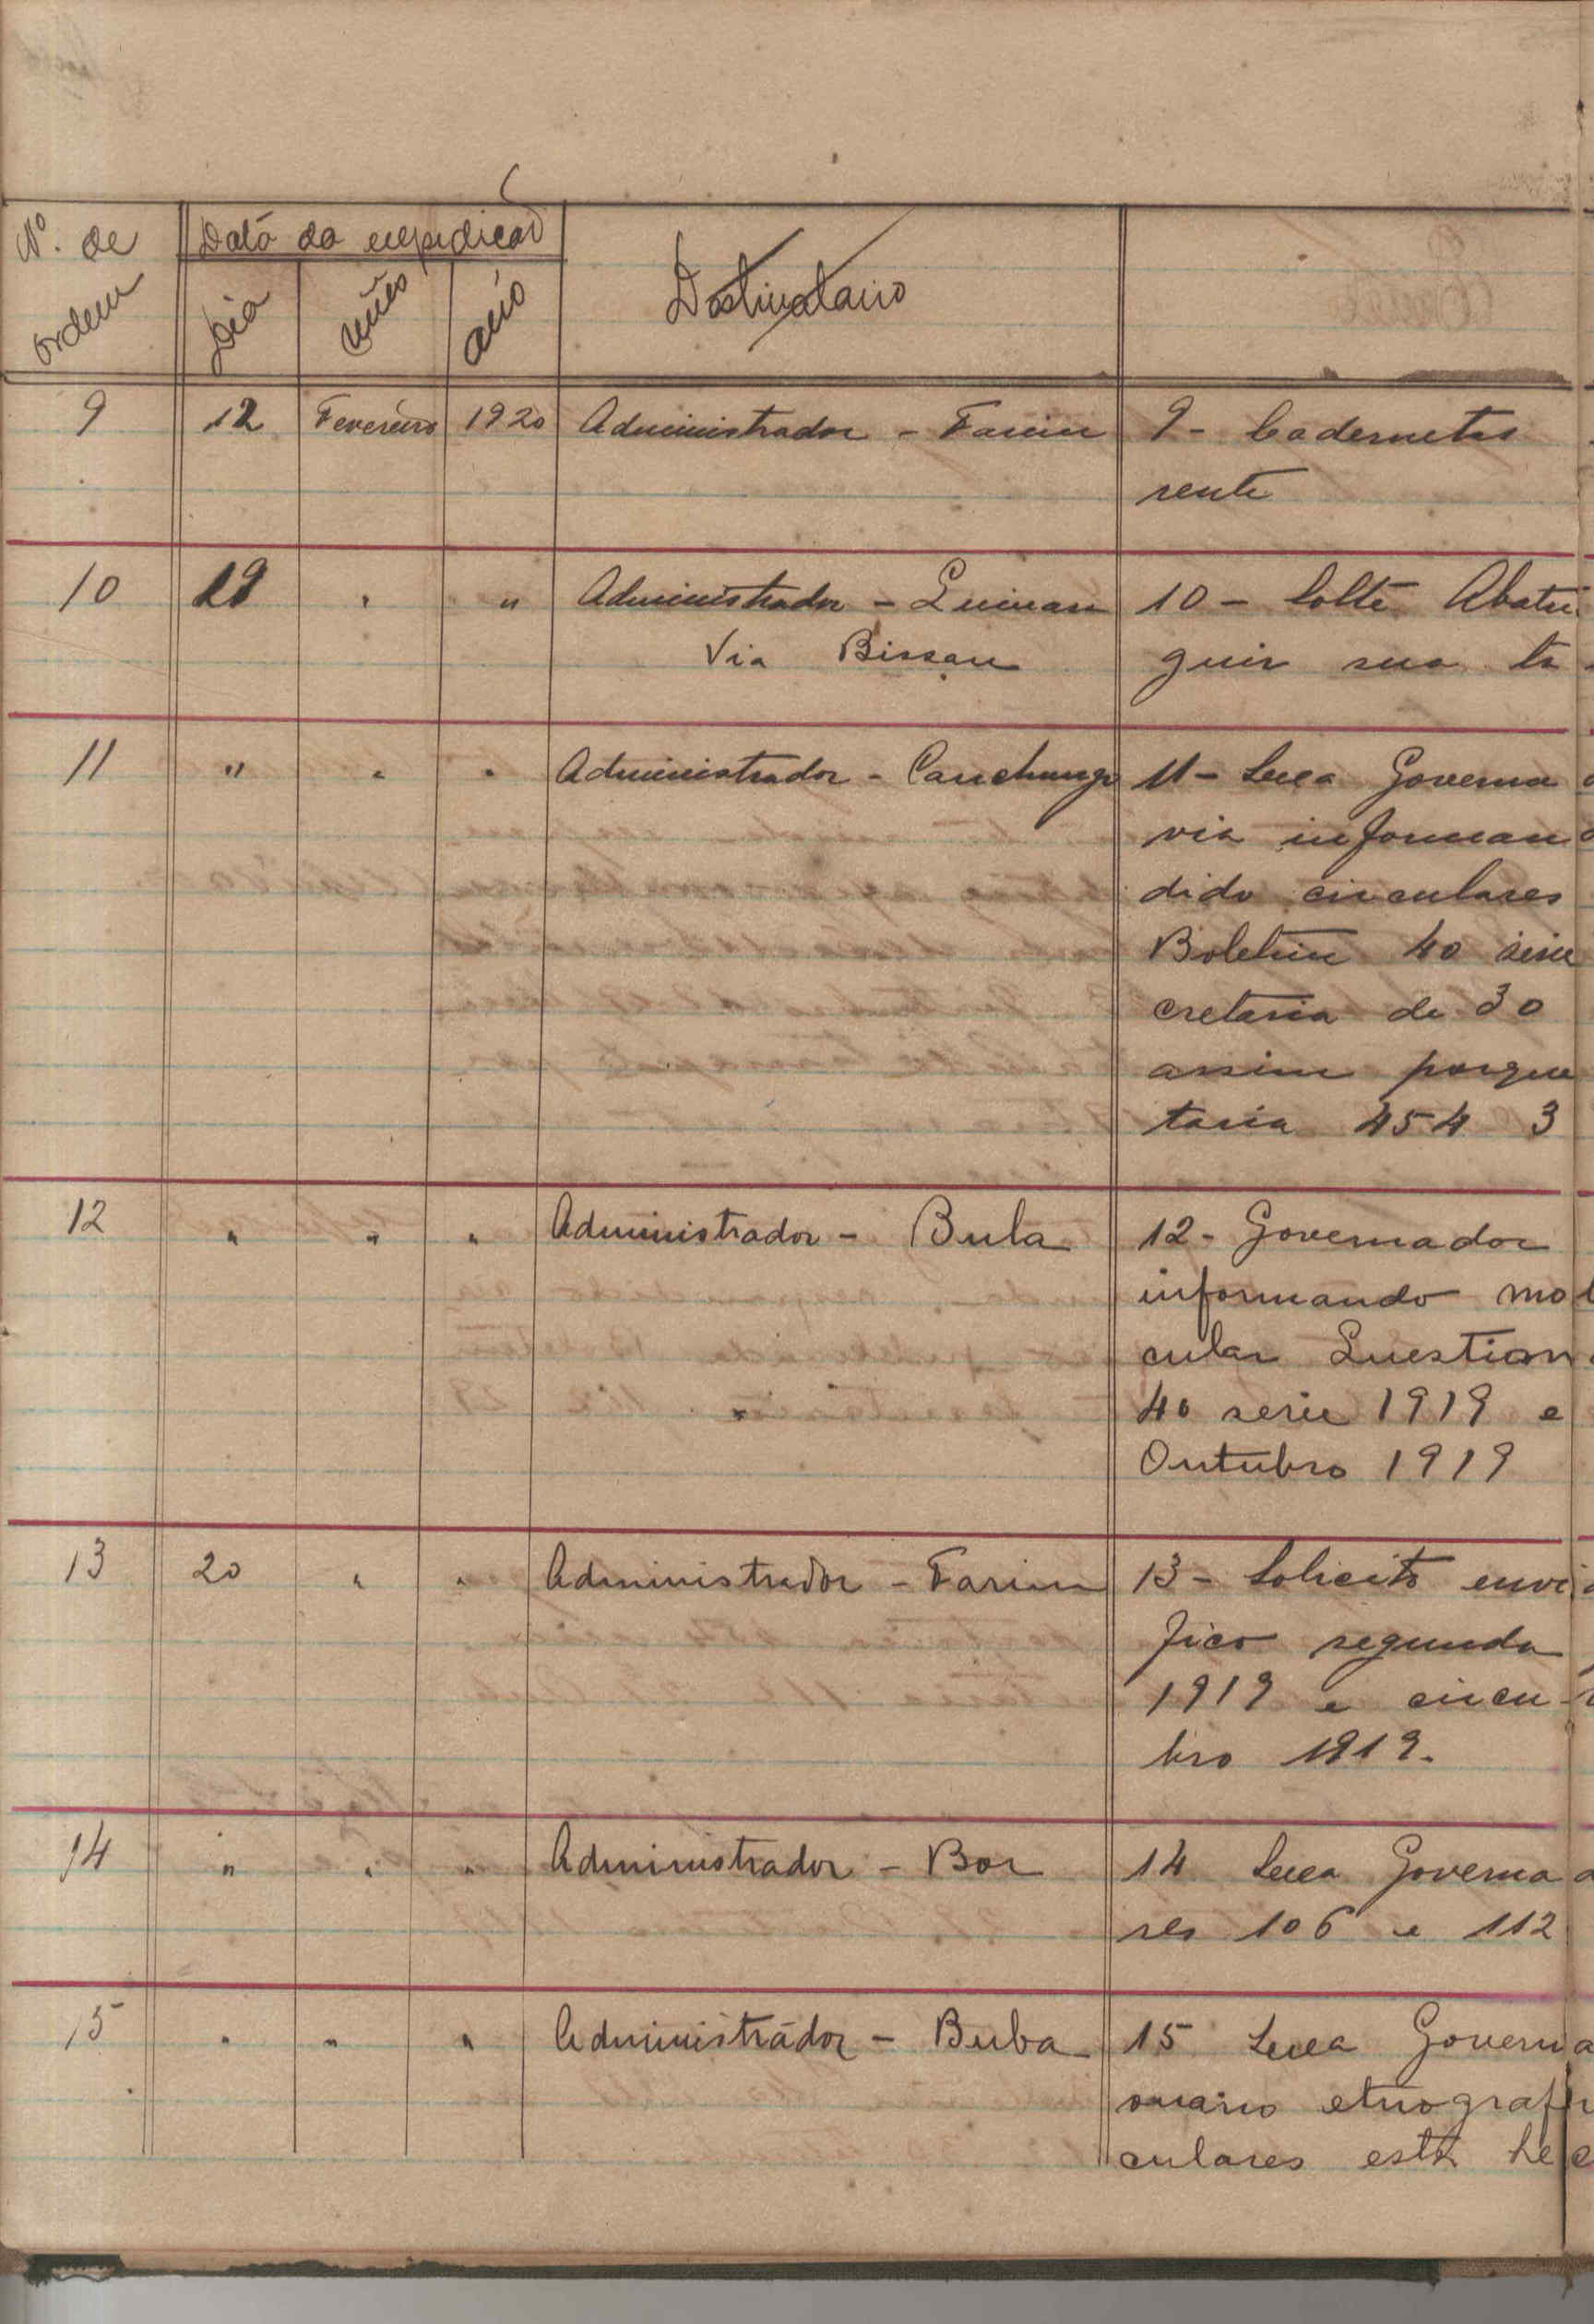 Nº. de ordem
Data da expedição
Dia mês ano
Destinatario
9 12 Fevereiro 1920 Administrador - Farim 9 - Cadernetas
sente
10 19 " " Administrador - Quinara 10 - Solte
Via Bissau guir sua ta
11 " " " Administrador - Canchungo 11 - Governa
via informan
dido circulares
Boletim 40 serie
cretaria de 30
assim porque
taria 454 3
12 " " " Administrador - Bula 12 - Governador
informando mo
cular Question
40 serie 1919 e
Outubro 1919
13 20 " " Administrador - Farim 13 - Solicito envi
fico segunda
1919 e circu
bro 1919.
14 " " " Administrador - Bor 14 Governa
res 106 e 112
15 " " " Administrador - Buba 15 Governa
onario etnografi
culares esta